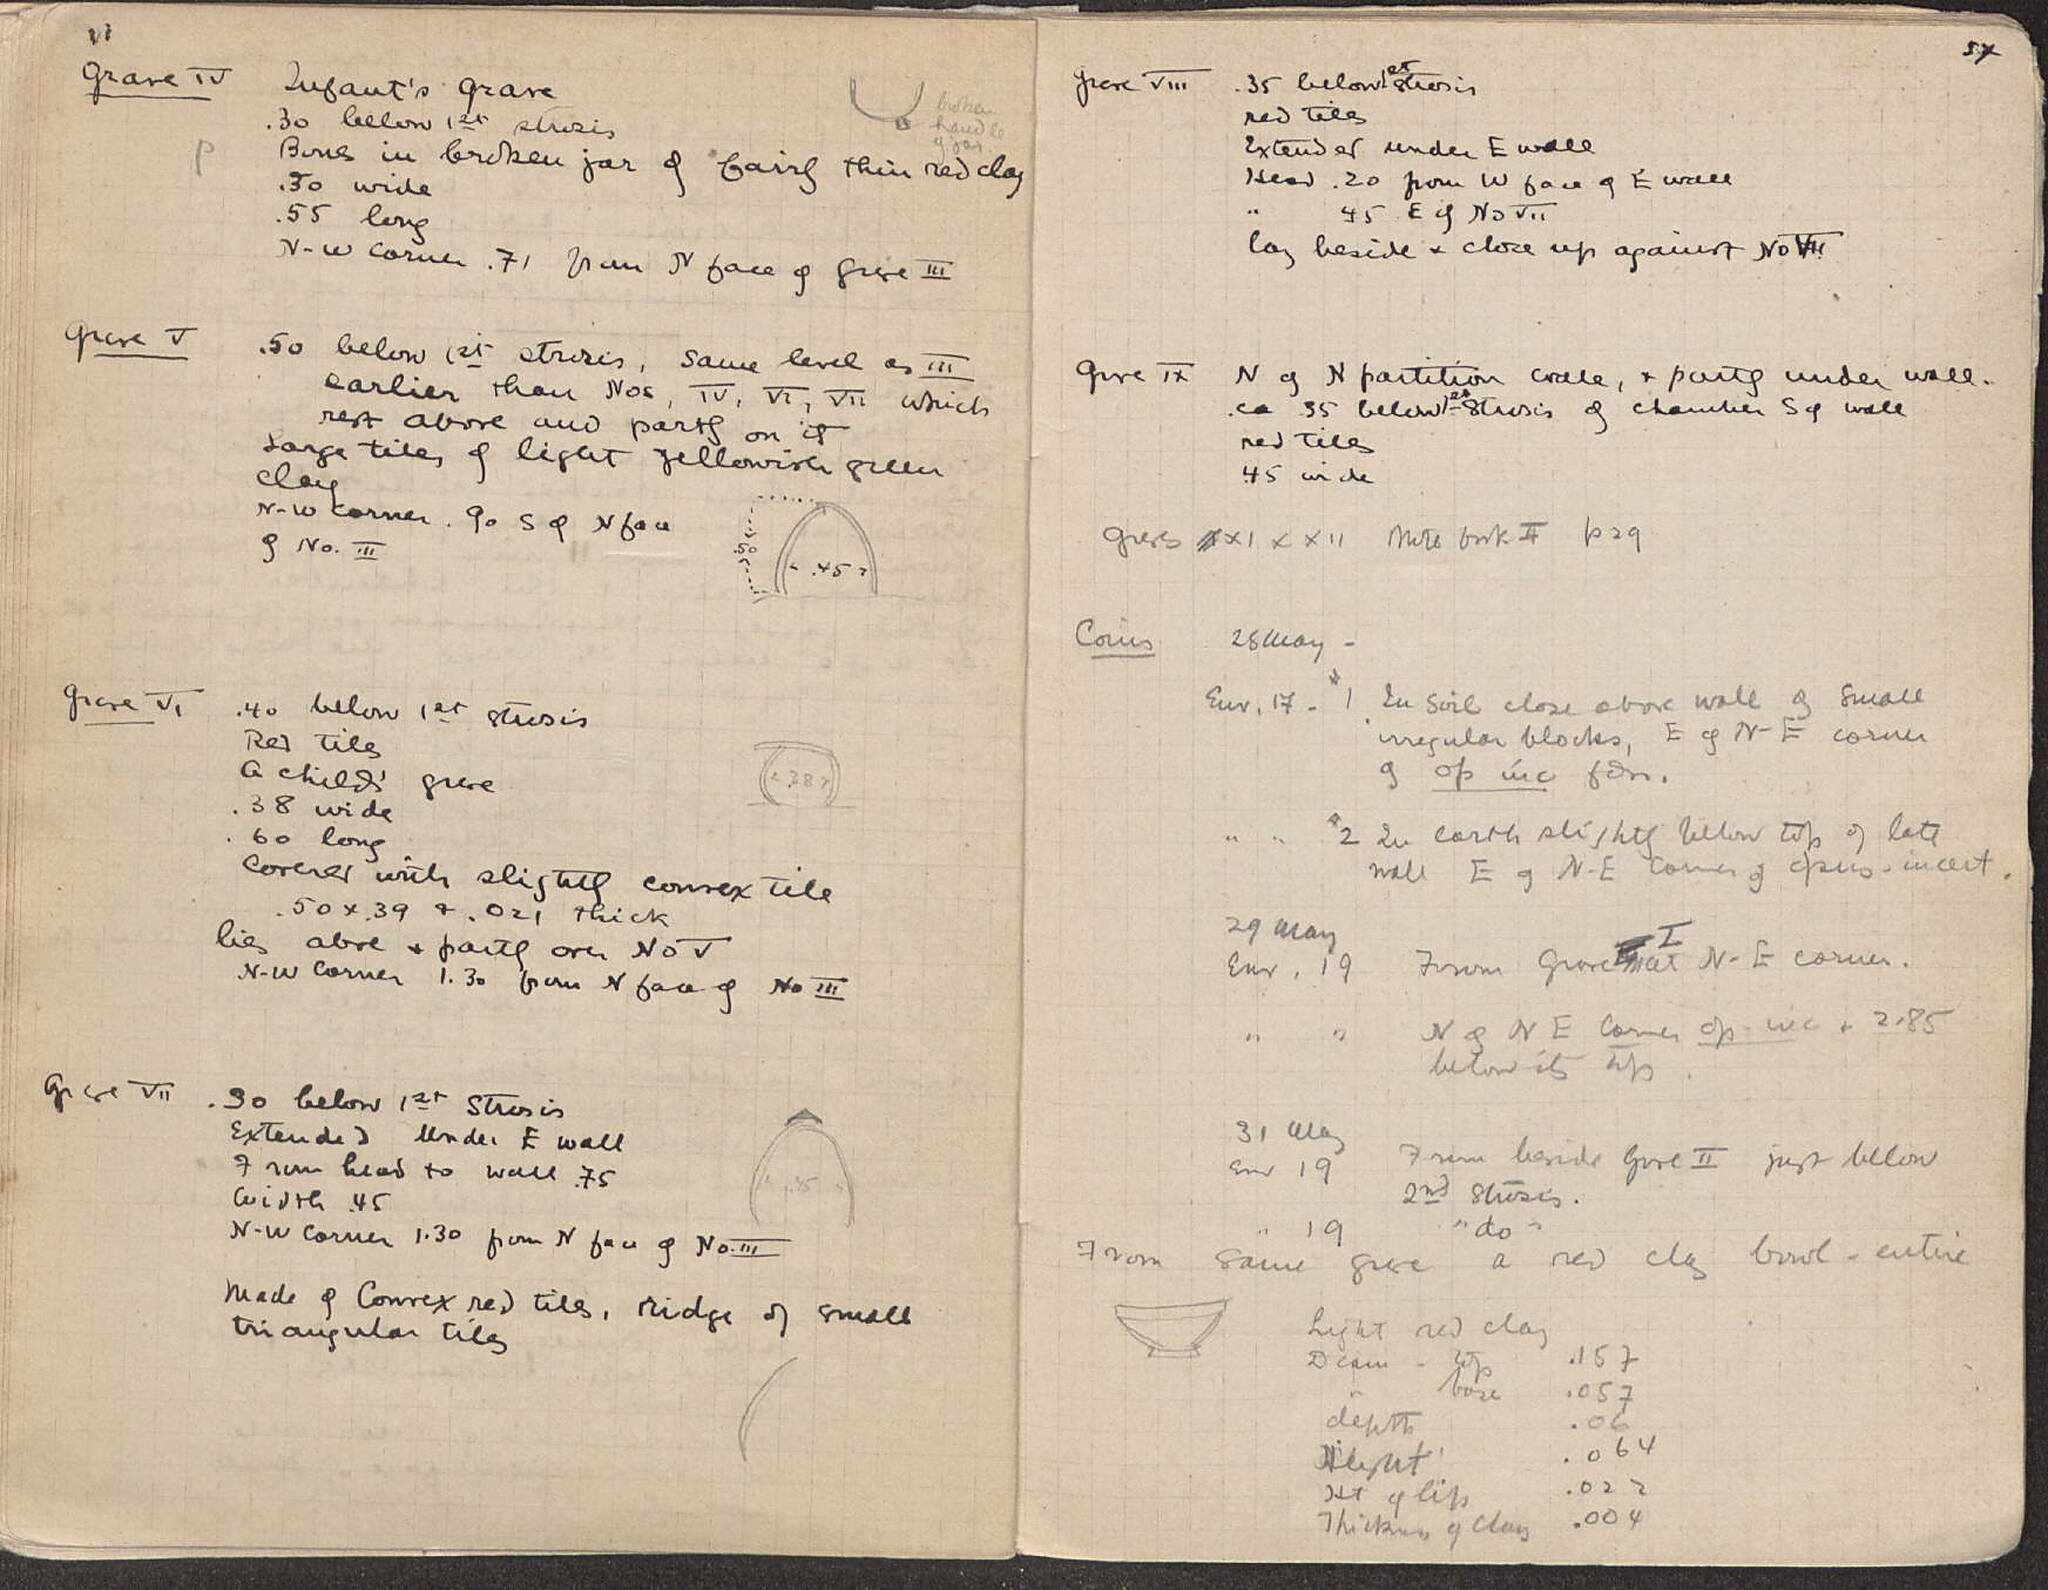 Grave IV Infant's grave
.30 below 1st strosis
P
Bones in broken jar of fairly thin red clay
broken
handle
of jar.
.30 wide
.55 long
N-W corner .71 from N face of grave III
Grave V .50 below 1st strosis, same level as III
earlier than Nos, IV, VI, VII which
rest above and partly on it
Large tiles of light yellowish green
clay
N-W corner .90 S of N face
of No. III
.50
.45
Grave VI .40 below 1st strosis
Red tiles
A child's grave
.38 wide
.38
.60 long
Covered with slightly convex tile
.50 x .39 + .021 thick
lies above + partly over No V
N-W corner 1.30 from N face of No III
Grave VII .30 below 1st Strosis
Extended under E wall
From head to wall .75
Width .45
.45
N-W corner 1.30 from N face of No. III
Made of Convex red tiles, ridge of small
triangular tiles
57
Grave VIII .35 below 1st strosis
red tiles
Extended under E wall
Head .20 from W face of E wall
" .45 E of No VII
lay beside + close up against No VII
Grave IX N of N partition wall, + partly under wall.
ca .35 below 1st strosis of chamber S of wall
red tiles
.45 wide
Graves XI X XII Note book II p 29
Coins 28 May -
Env. 17 - #1 In soil close above wall of small
irregular blocks, E of N-E corner
of op inc fdn.
" " #2 In earth slightly below top of late
wall E of N-E corner of opus-incert.
29 May
Env. 19 From Grave I at N-E corner.
" " N of N E corner op-inc + 2.85
below its top.
31 May
Env 19 From beside Grave II just below
2nd strosis.
" 19 " do "
From same grave a red clay bowl - entire
Light red clay
Diam - top .157
" base .057
depth .06
Height .064
Ht of lip .022
Thickness of clay .004